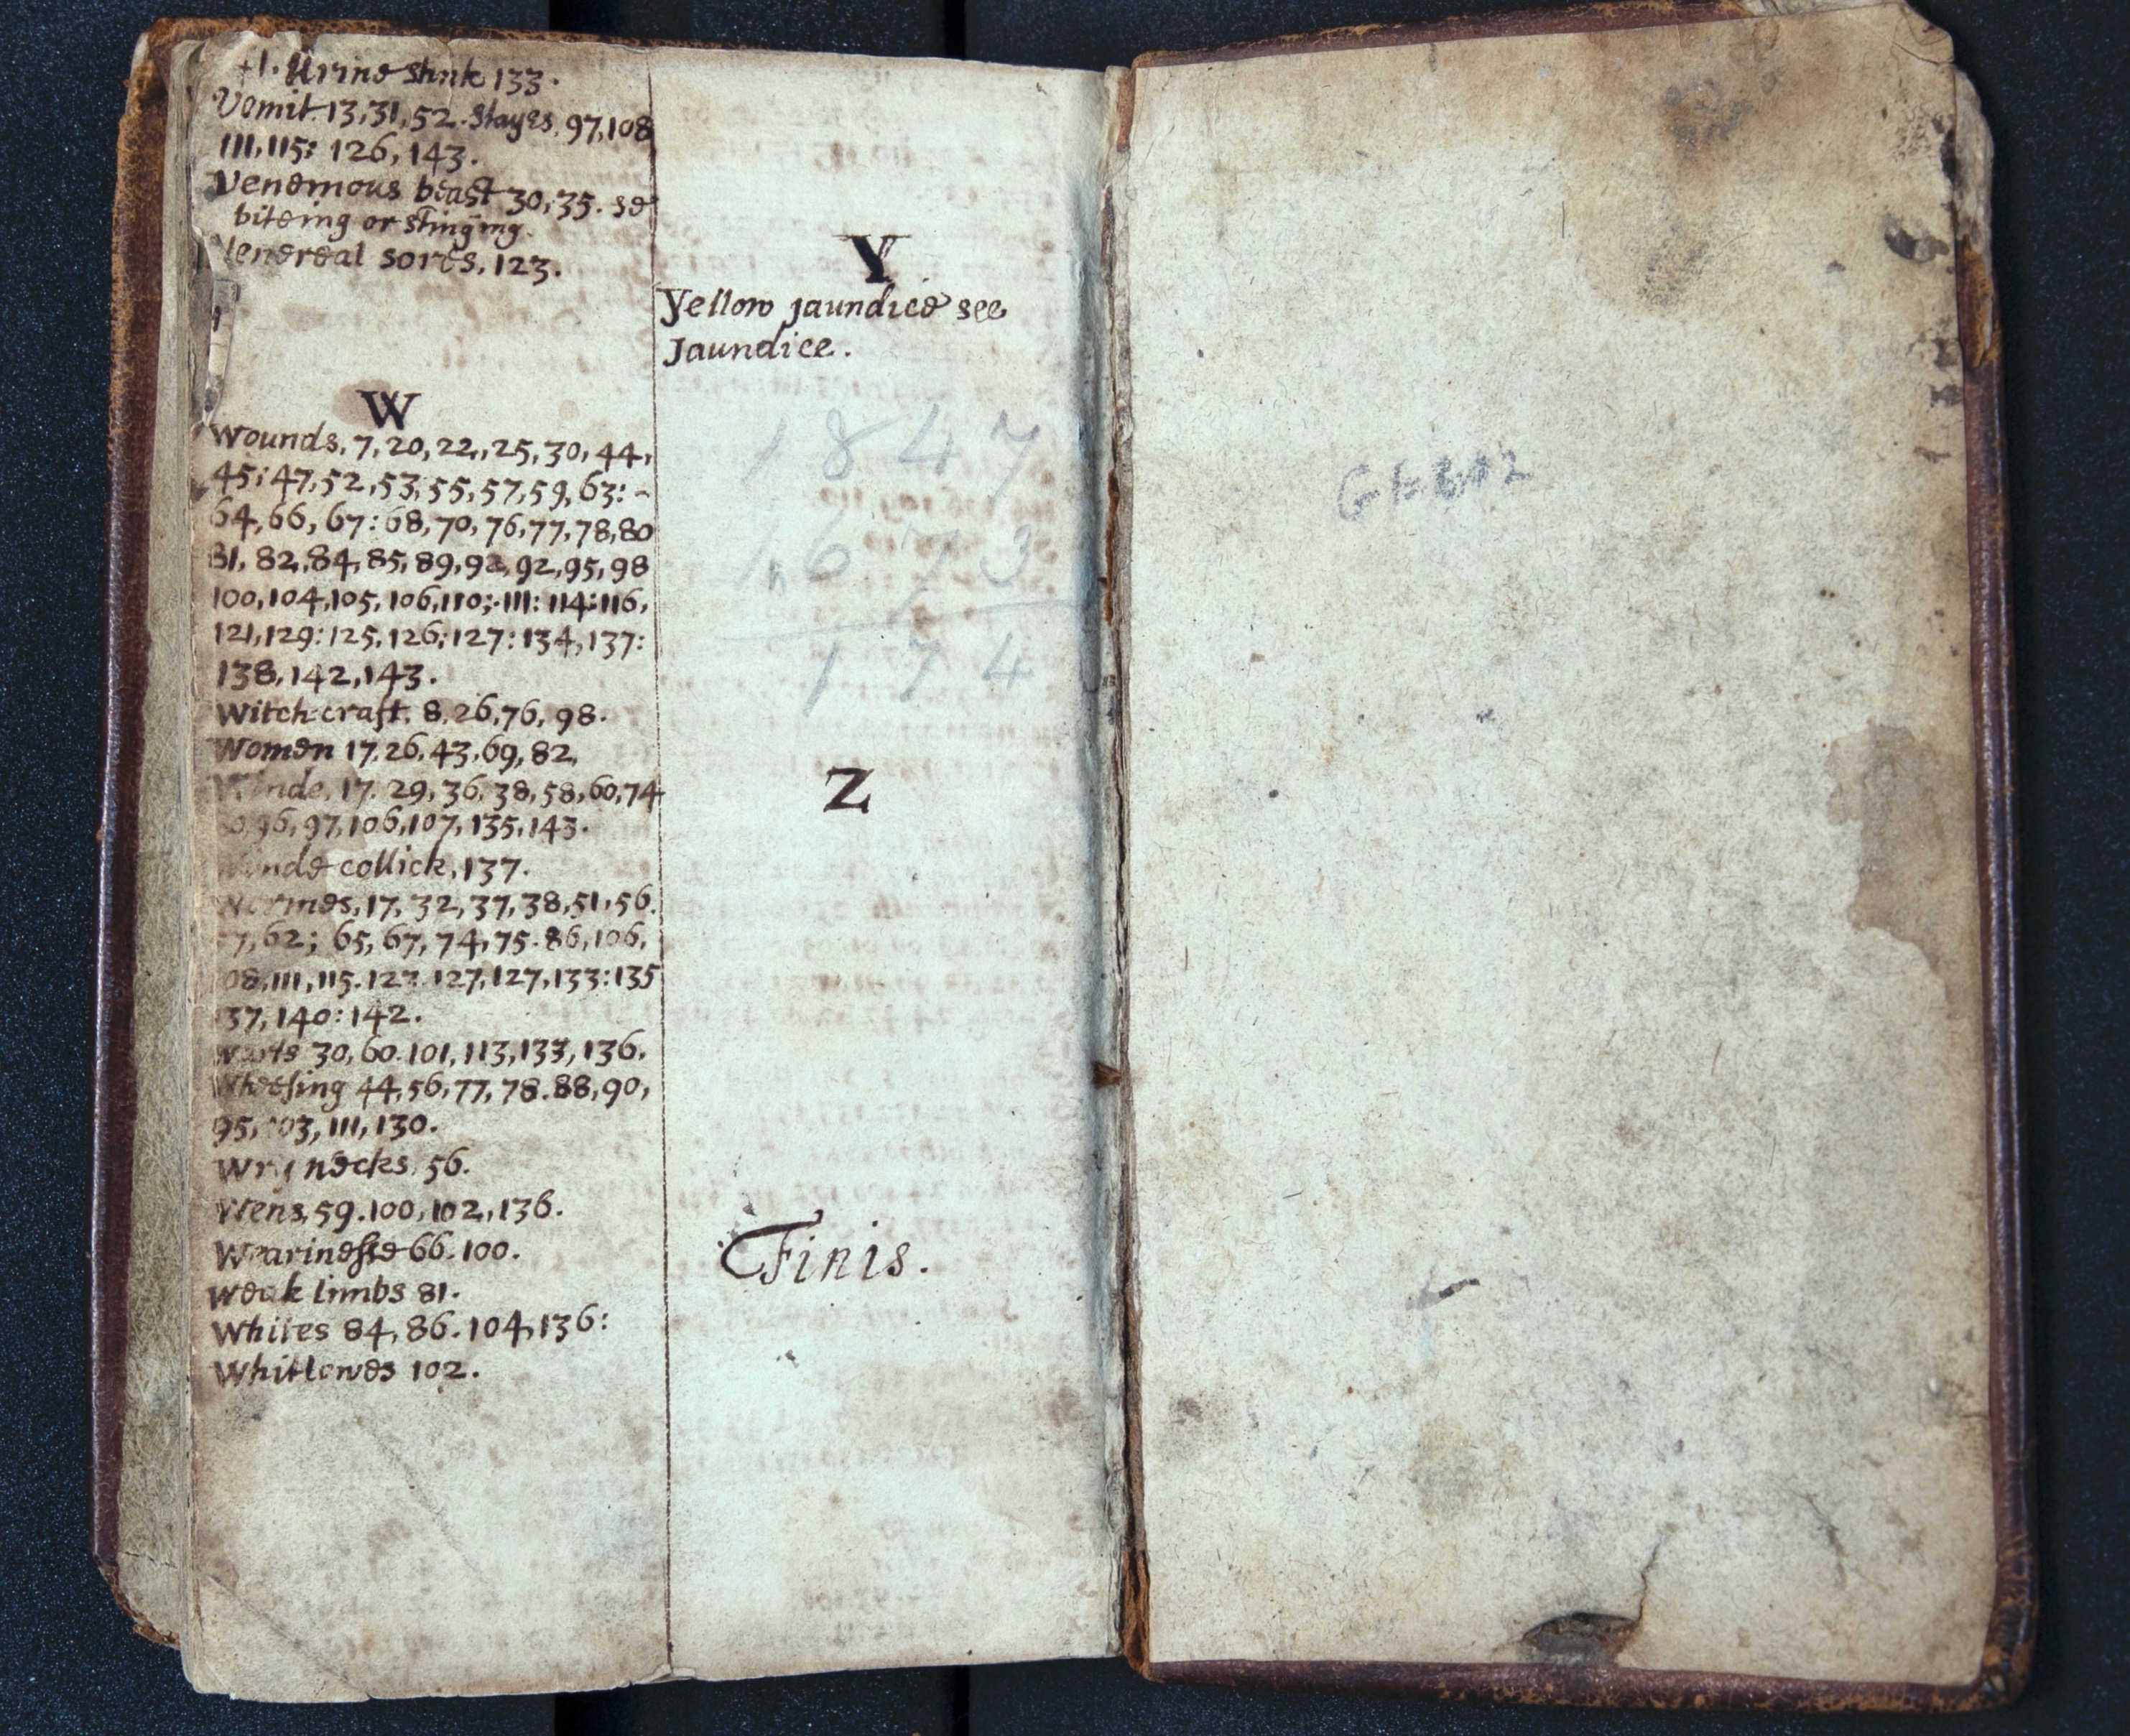 Urine stink 133.
Vomit. 13, 31, 52. stayes, 97, 108
111, 115: 126, 143.
Venemous beast 30, 35. se
biteing or stinging.
Venereal sores, 123.
W
Wounds, 7, 20, 22, 25, 30, 44,
45: 47, 52, 53, 55, 57, 59, 63: -
64, 66, 67: 68, 70, 76, 77, 78, 80
81, 82, 84, 85, 89, 92, 92, 95, 98
100, 104, 105, 106, 110; 111: 114: 116,
121, 129: 125, 126; 127: 134, 137:
138, 142, 143.
Witchcraft. 8, 26, 76, 98.
Women 17, 26, 43, 69, 82,
Winde, 17. 29, 36, 38, 58, 60, 74
96, 97, 106, 107, 135, 143.
Winde collick, 137.
Wormes, 17, 32, 37, 38, 51, 56.
57, 62; 65, 67, 74, 75. 86, 106,
108, 111, 115. 123. 127, 127, 133: 135
137, 140: 142.
Warts 30, 60. 101, 113, 133, 136.
Wheesing 44, 56, 77, 78. 88, 90,
95, 103, 111, 130.
Wry necks, 56.
Wens, 59. 100, 102, 136.
Wearinesse 66. 100.
Weak limbs 81.
Whites 84, 86. 104, 136:
Whitlowes 102.
Y
Yellow jaundice see
Jaundice.
1847
1673
174
Z
Finis.